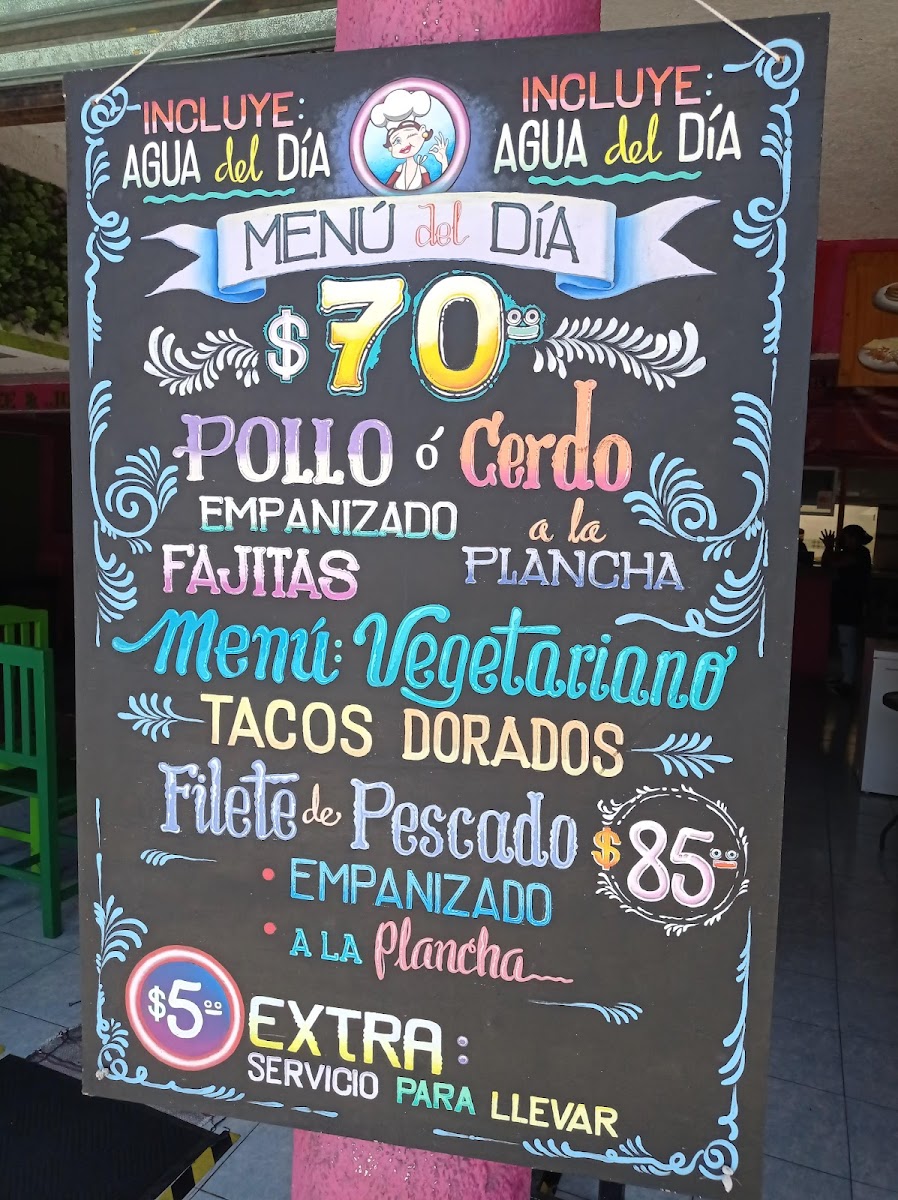 INCLUYE:
AGUA del DÍA
INCLUYE:
AGUA del DÍA
MENÚ del DÍA
$70.00
POLLO ó Cerdo
EMPANIZADO
a la
FAJITAS
PLANCHA
Menú: Vegetariano
TACOS DORADOS
Filete de Pescado
$85.00
• EMPANIZADO
• A LA Plancha
$5.00
EXTRA:
SERVICIO PARA LLEVAR